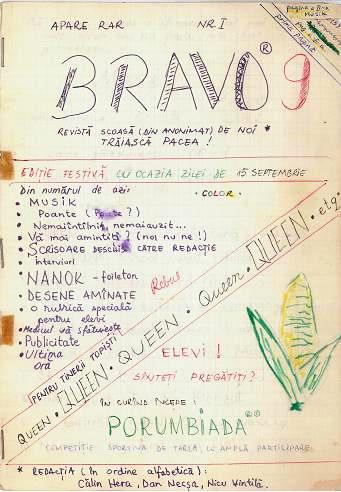 APARE RAR NR. I
pagina a II-a
MUSIK
prima pagină
BRAVO ® 9
REVISTĂ SCOASĂ (DIN ANONIMAT) DE NOI *
TRĂIASCĂ PACEA !
EDIȚIE FESTIVĂ CU OCAZIA ZILEI DE 15 SEPTEMBRIE
Din numărul de azi:
• COLOR •
• MUSIK
• Poante (Poante ?)
• Nemaiîntîlnit, nemaiauzit...
• Vă mai amintiți ? (noi nu ne !)
• SCRISOARE DESCHISĂ CĂTRE REDACȚIE
• interviuri
• NANOK - foileton
• DESENE AMÎNATE
• o rubrică specială
pentru elevi
• Medicul vă sfătuiește
• Publicitate
• Ultima
oră
Rebus
PENTRU TINERII TOPIȘTI
QUEEN • QUEEN • QUEEN • Queen • QUEEN • etc
ELEVI !
SÎNTEȚI PREGĂTIȚI ?
ÎN CURÎND ÎNCEPE :
PORUMBIADA
COMPETIȚIE SPORTIVĂ DE TARLA, CU AMPLĂ PARTICIPARE.
* REDACȚIA (în ordine alfabetică) :
Călin Hera, Dan Necșa, Nicu Vintilă.